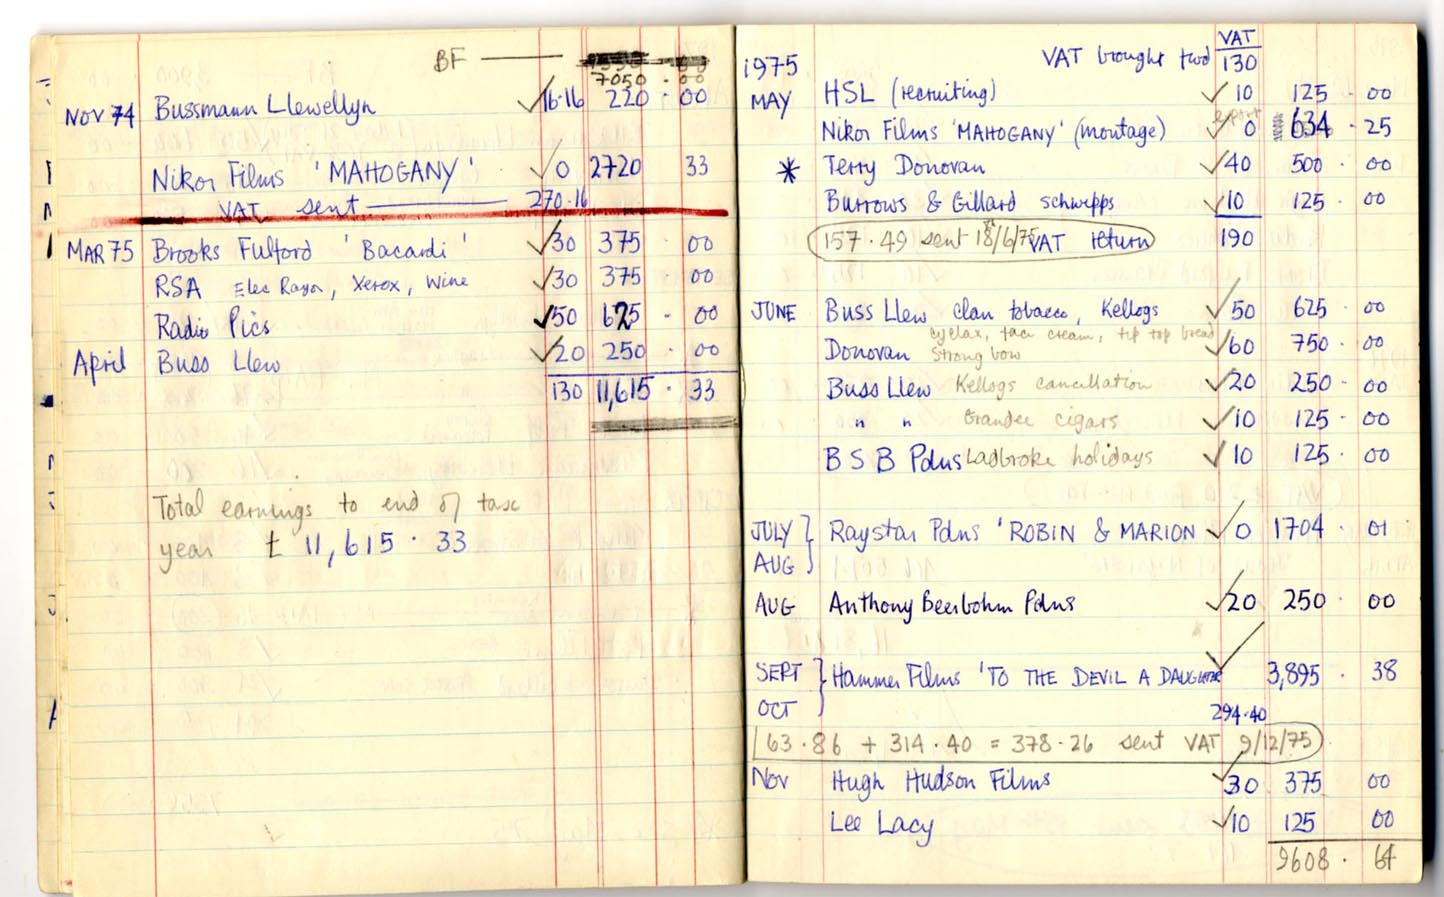 BF
7050 · 00
Nov 74 Bussmann Llewellyn 16·16 220 · 00
Nikor Films 'MAHOGANY' 0 2720 33
VAT sent 270·16
MAR 75 Brooks Fulford 'Bacardi' 30 375 · 00
RSA Elec Razor, Xerox, Wine 30 375 00
Radio Pics 50 625 · 00
April Buss Llew 20 250 · 00
130 11,615 · 33
Total earnings to end of taxe
year £ 11,615 · 33
VAT
1975 VAT brought fwd 130
MAY HSL (recruiting) 10 125 · 00
export
Nikor Films 'MAHOGANY' (montage) 0 634 · 25
* Terry Donovan 40 500 · 00
Burrows & Gillard schwepps 10 125 · 00
157 · 49 sent 18th/6/75 VAT return 190
JUNE Buss Llew clan tobacco, Kellogs 50 625 · 00
cyclax, face cream, tip top bread
Donovan Strongbow 60 750 · 00
Buss Llew Kellogs cancellation 20 250 · 00
" " Grandee cigars 10 125 · 00
B S B Pdns Ladbroke holidays 10 125 · 00
JULY } Raystar Pdns 'ROBIN & MARION 0 1704 · 01
AUG
AUG Anthony Beerbohm Pdns 20 250 · 00
SEPT } Hammer Films 'TO THE DEVIL A DAUGHTER' 3,895 · 38
OCT 294·40
63·86 + 314·40 = 378·26 sent VAT 9/12/75
Nov Hugh Hudson Films 30 375 00
Lee Lacy 10 125 00
9608 · 64